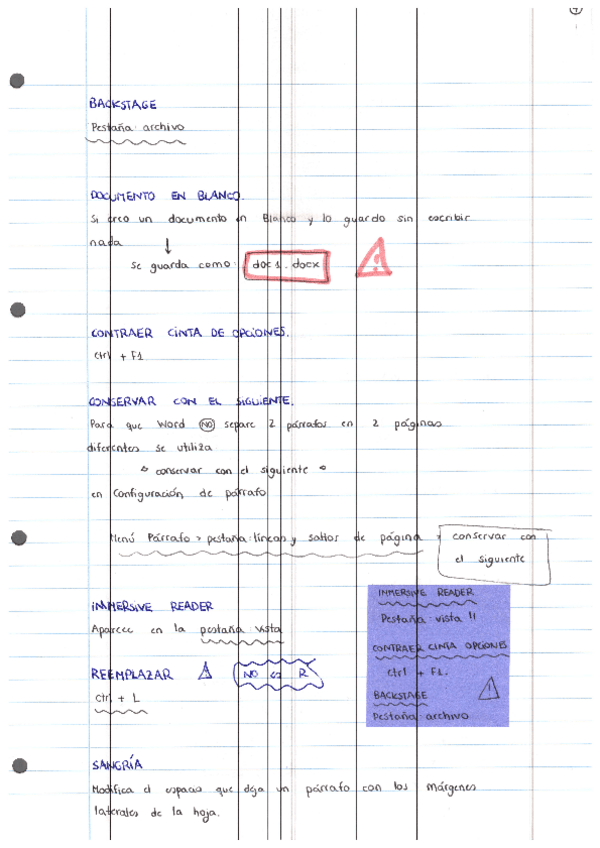 BACKSTAGE
Pestaña archivo
DOCUMENTO EN BLANCO.
Si creo un documento en Blanco y lo guardo sin escribir
nada
se guarda como: doc1.docx
CONTRAER CINTA DE OPCIONES.
ctrl + F1
CONSERVAR CON EL SIGUIENTE.
Para que Word NO separe 2 párrafos en 2 páginas
diferentes se utiliza
conservar con el siguiente
en configuración de párrafo
Menú Párrafo > pestaña: líneas y saltos de página > conservar con
el siguiente
IMMERSIVE READER
Aparece en la pestaña vista
REEMPLAZAR NO es R
ctrl + L
IMMERSIVE READER
Pestaña: vista !!
CONTRAER CINTA OPCIONES
ctrl + F1.
BACKSTAGE
Pestaña: archivo
SANGRÍA
Modifica el espacio que deja un párrafo con los márgenes
laterales de la hoja.